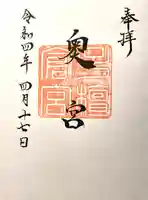 奉拝
奥宮
令和四年四月十七日